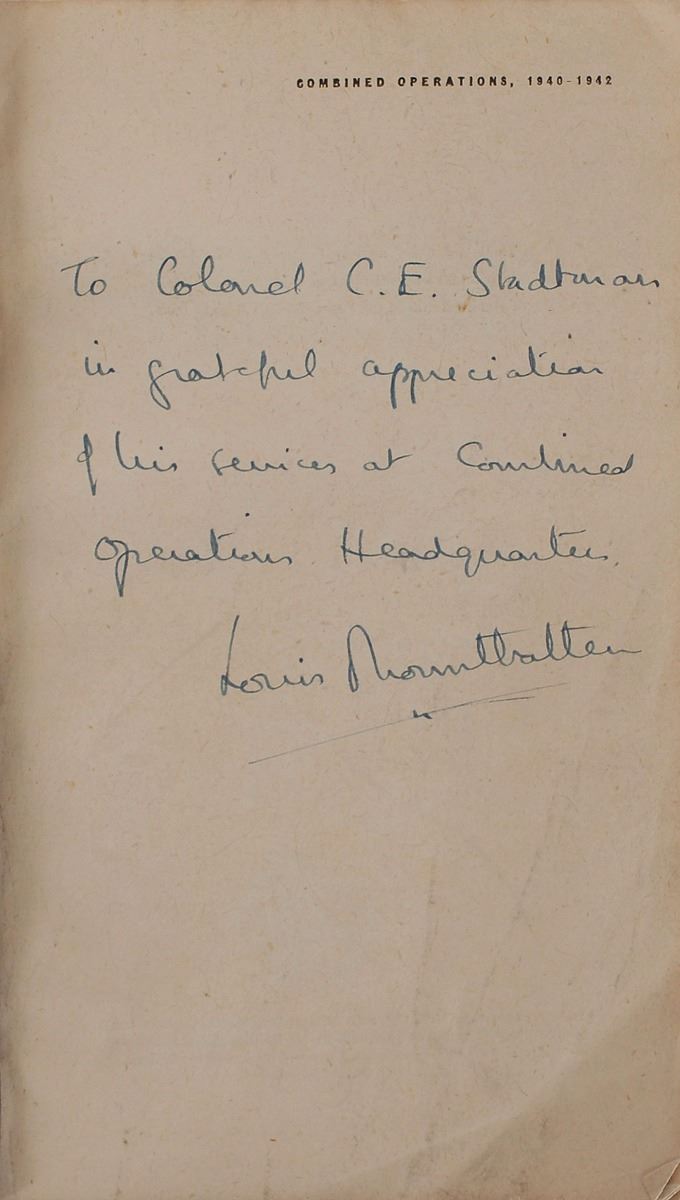 COMBINED OPERATIONS, 1940-1942
To Colonel C.E. Stadtman
in grateful appreciation
of his services at Combined
Operations Headquarters.
Louis Mountbatten